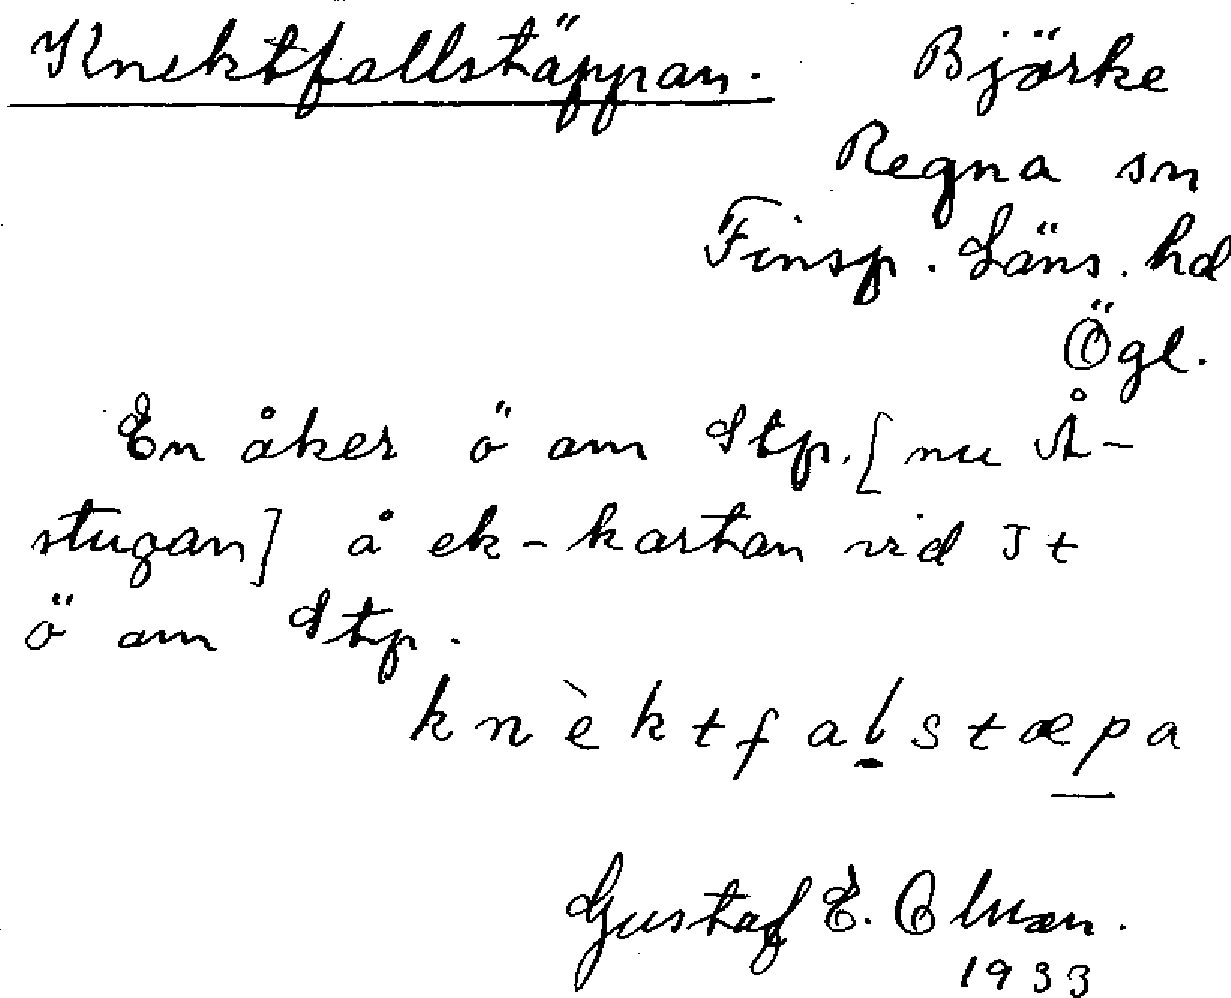 Knektfallstäppan. Björke
Regna sn
Finsp. Läns. hd
Ögl.
En åker ö om Stp. [nu Å-
stugan] å ek-kartan vid J t
ö om Stp.
knèktfalstæpa
Gustaf E.
1933